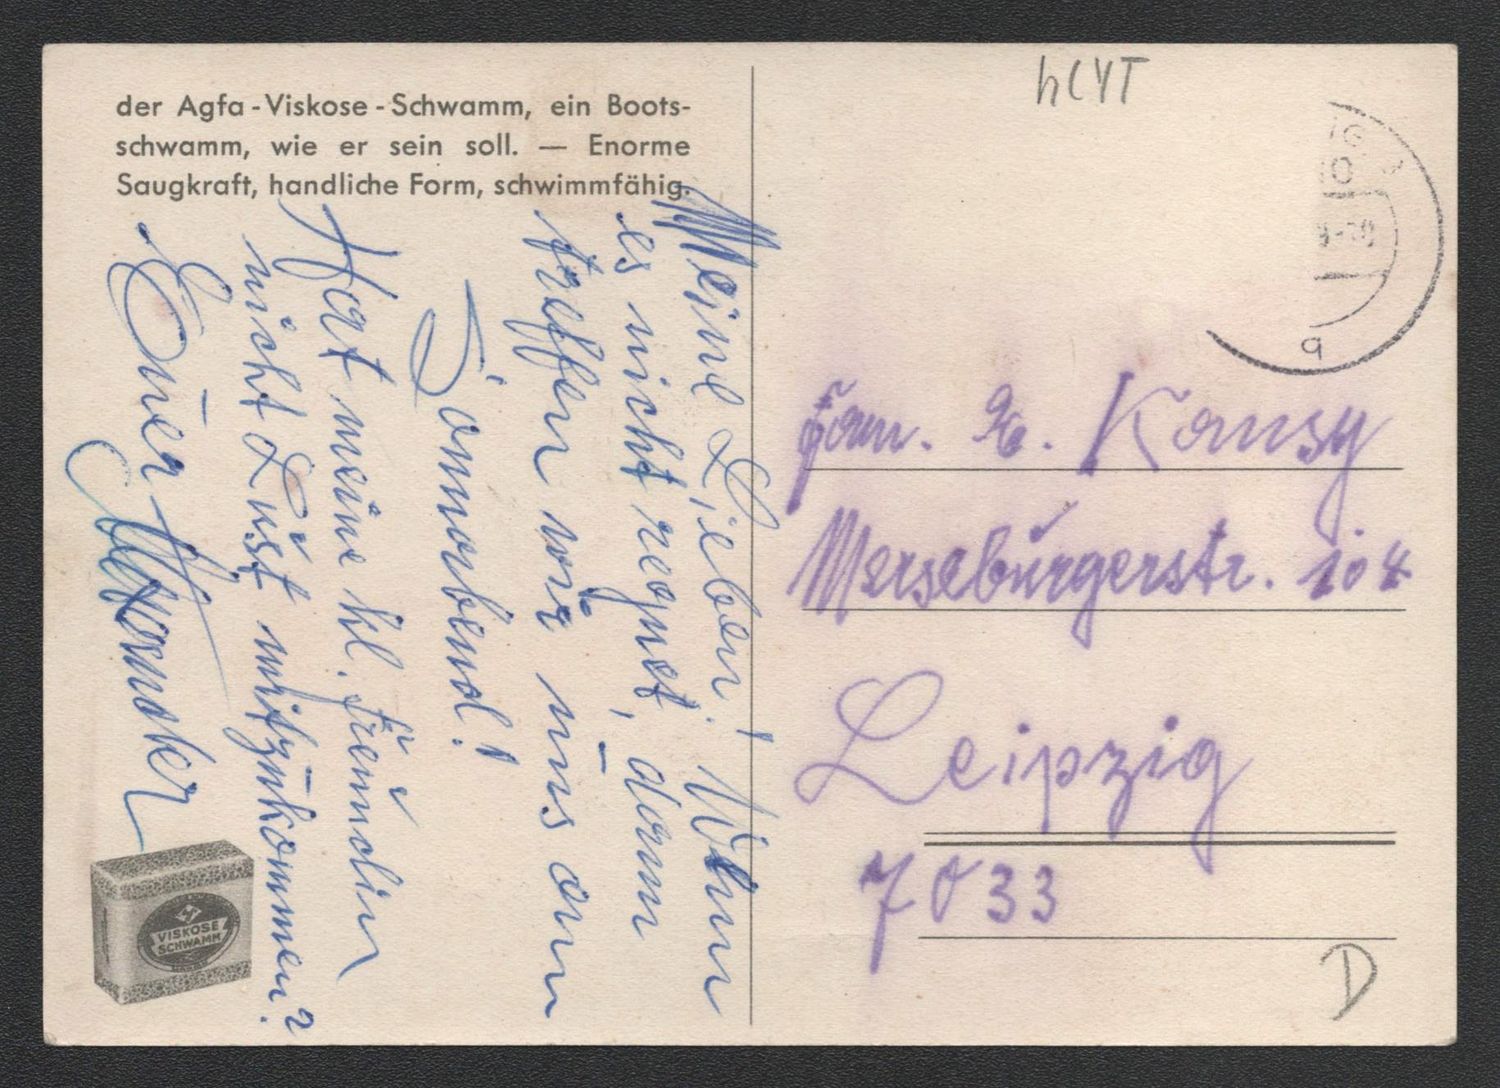 der Agfa-Viskose-Schwamm, ein Boots-
schwamm, wie er sein soll. — Enorme
Saugkraft, handliche Form, schwimmfähig.
Meine Lieben! Wenn
es nicht regnet, dann
treffen wir uns am
Sonnabend!
Hat meine kl. Freundin
nicht Lust mitzukommen?
Euer
VISKOSE
SCHWAMM
Fam. Kansy
Merseburgerstr. 104
Leipzig
7033
D
IG
10
a